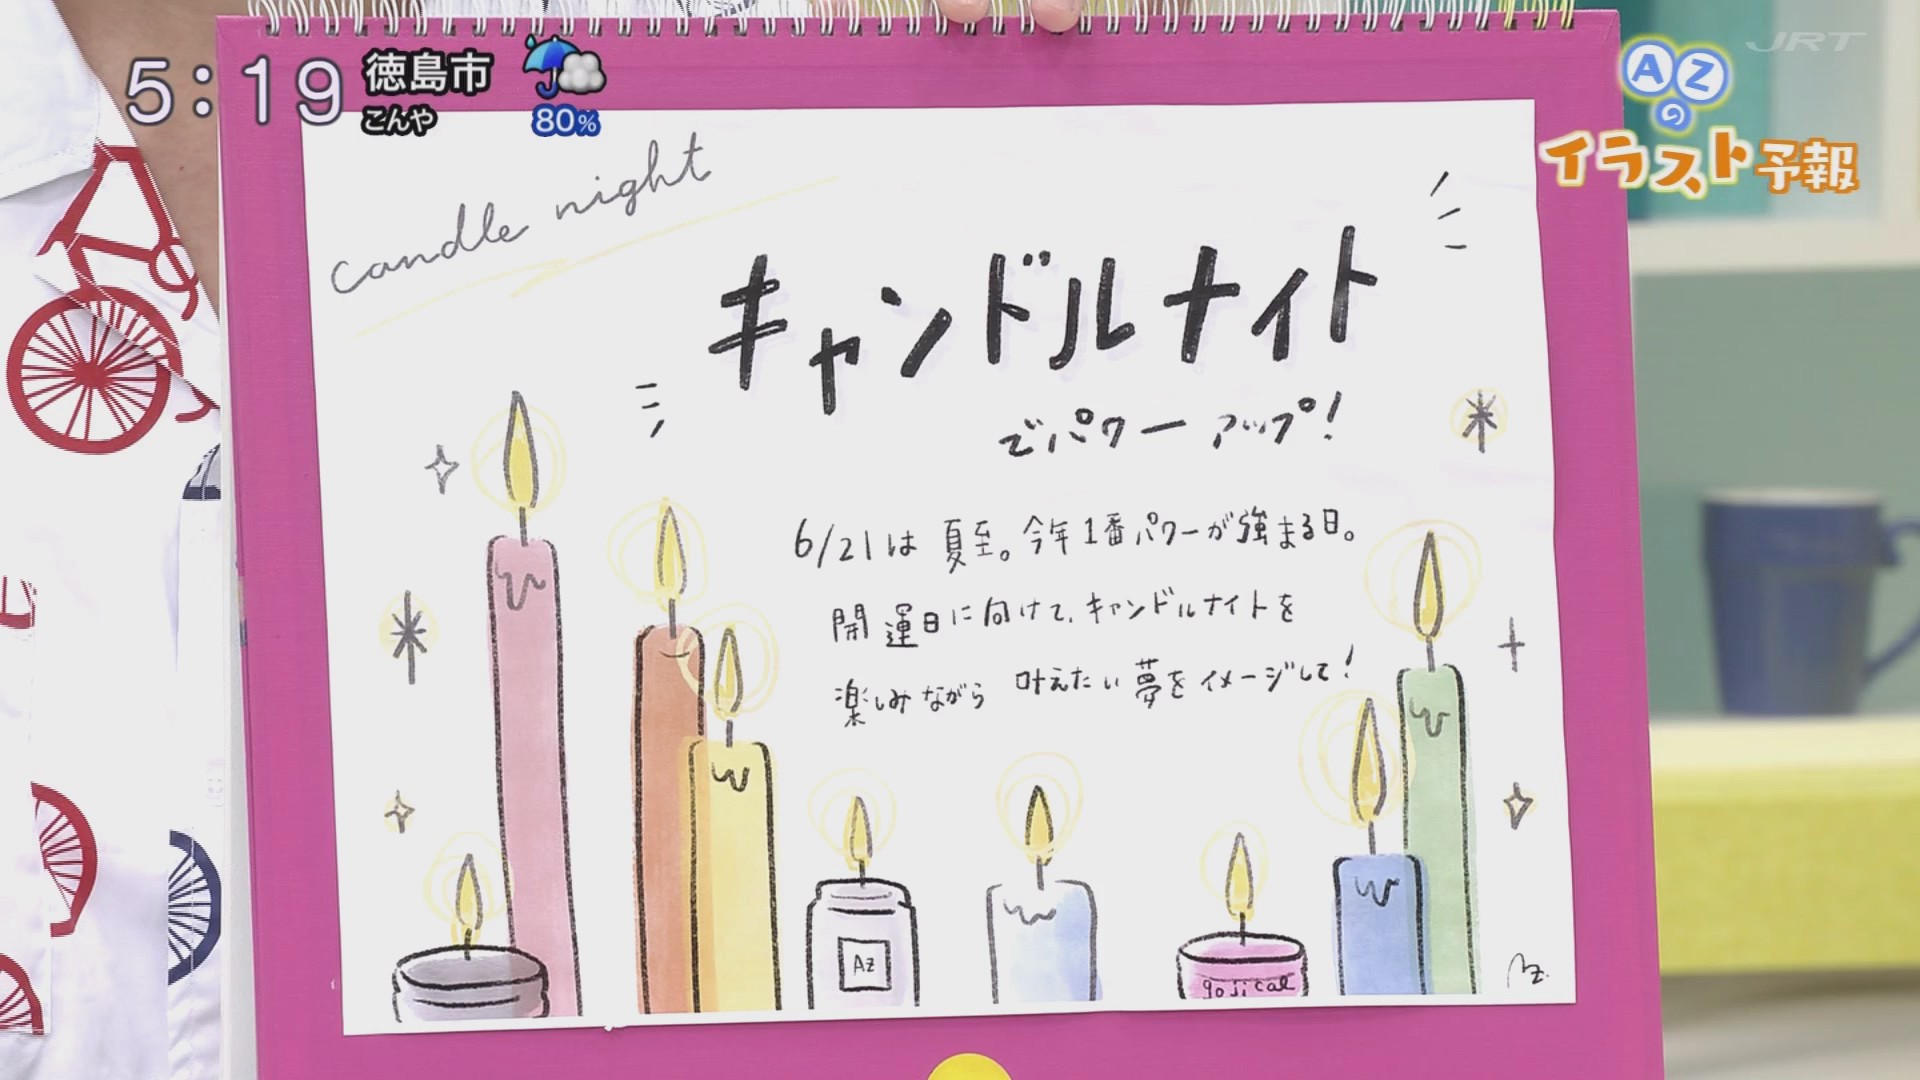 5:19
徳島市
こんや
80%
JRT
AZ
の
イラスト予報
candle night
キャンドルナイト
でパワーアップ!
6/21は夏至。今年1番パワーが強まる日。
開運日に向けて、キャンドルナイトを
楽しみながら 叶えたい夢をイメージして!
AZ
gojical
AZ.